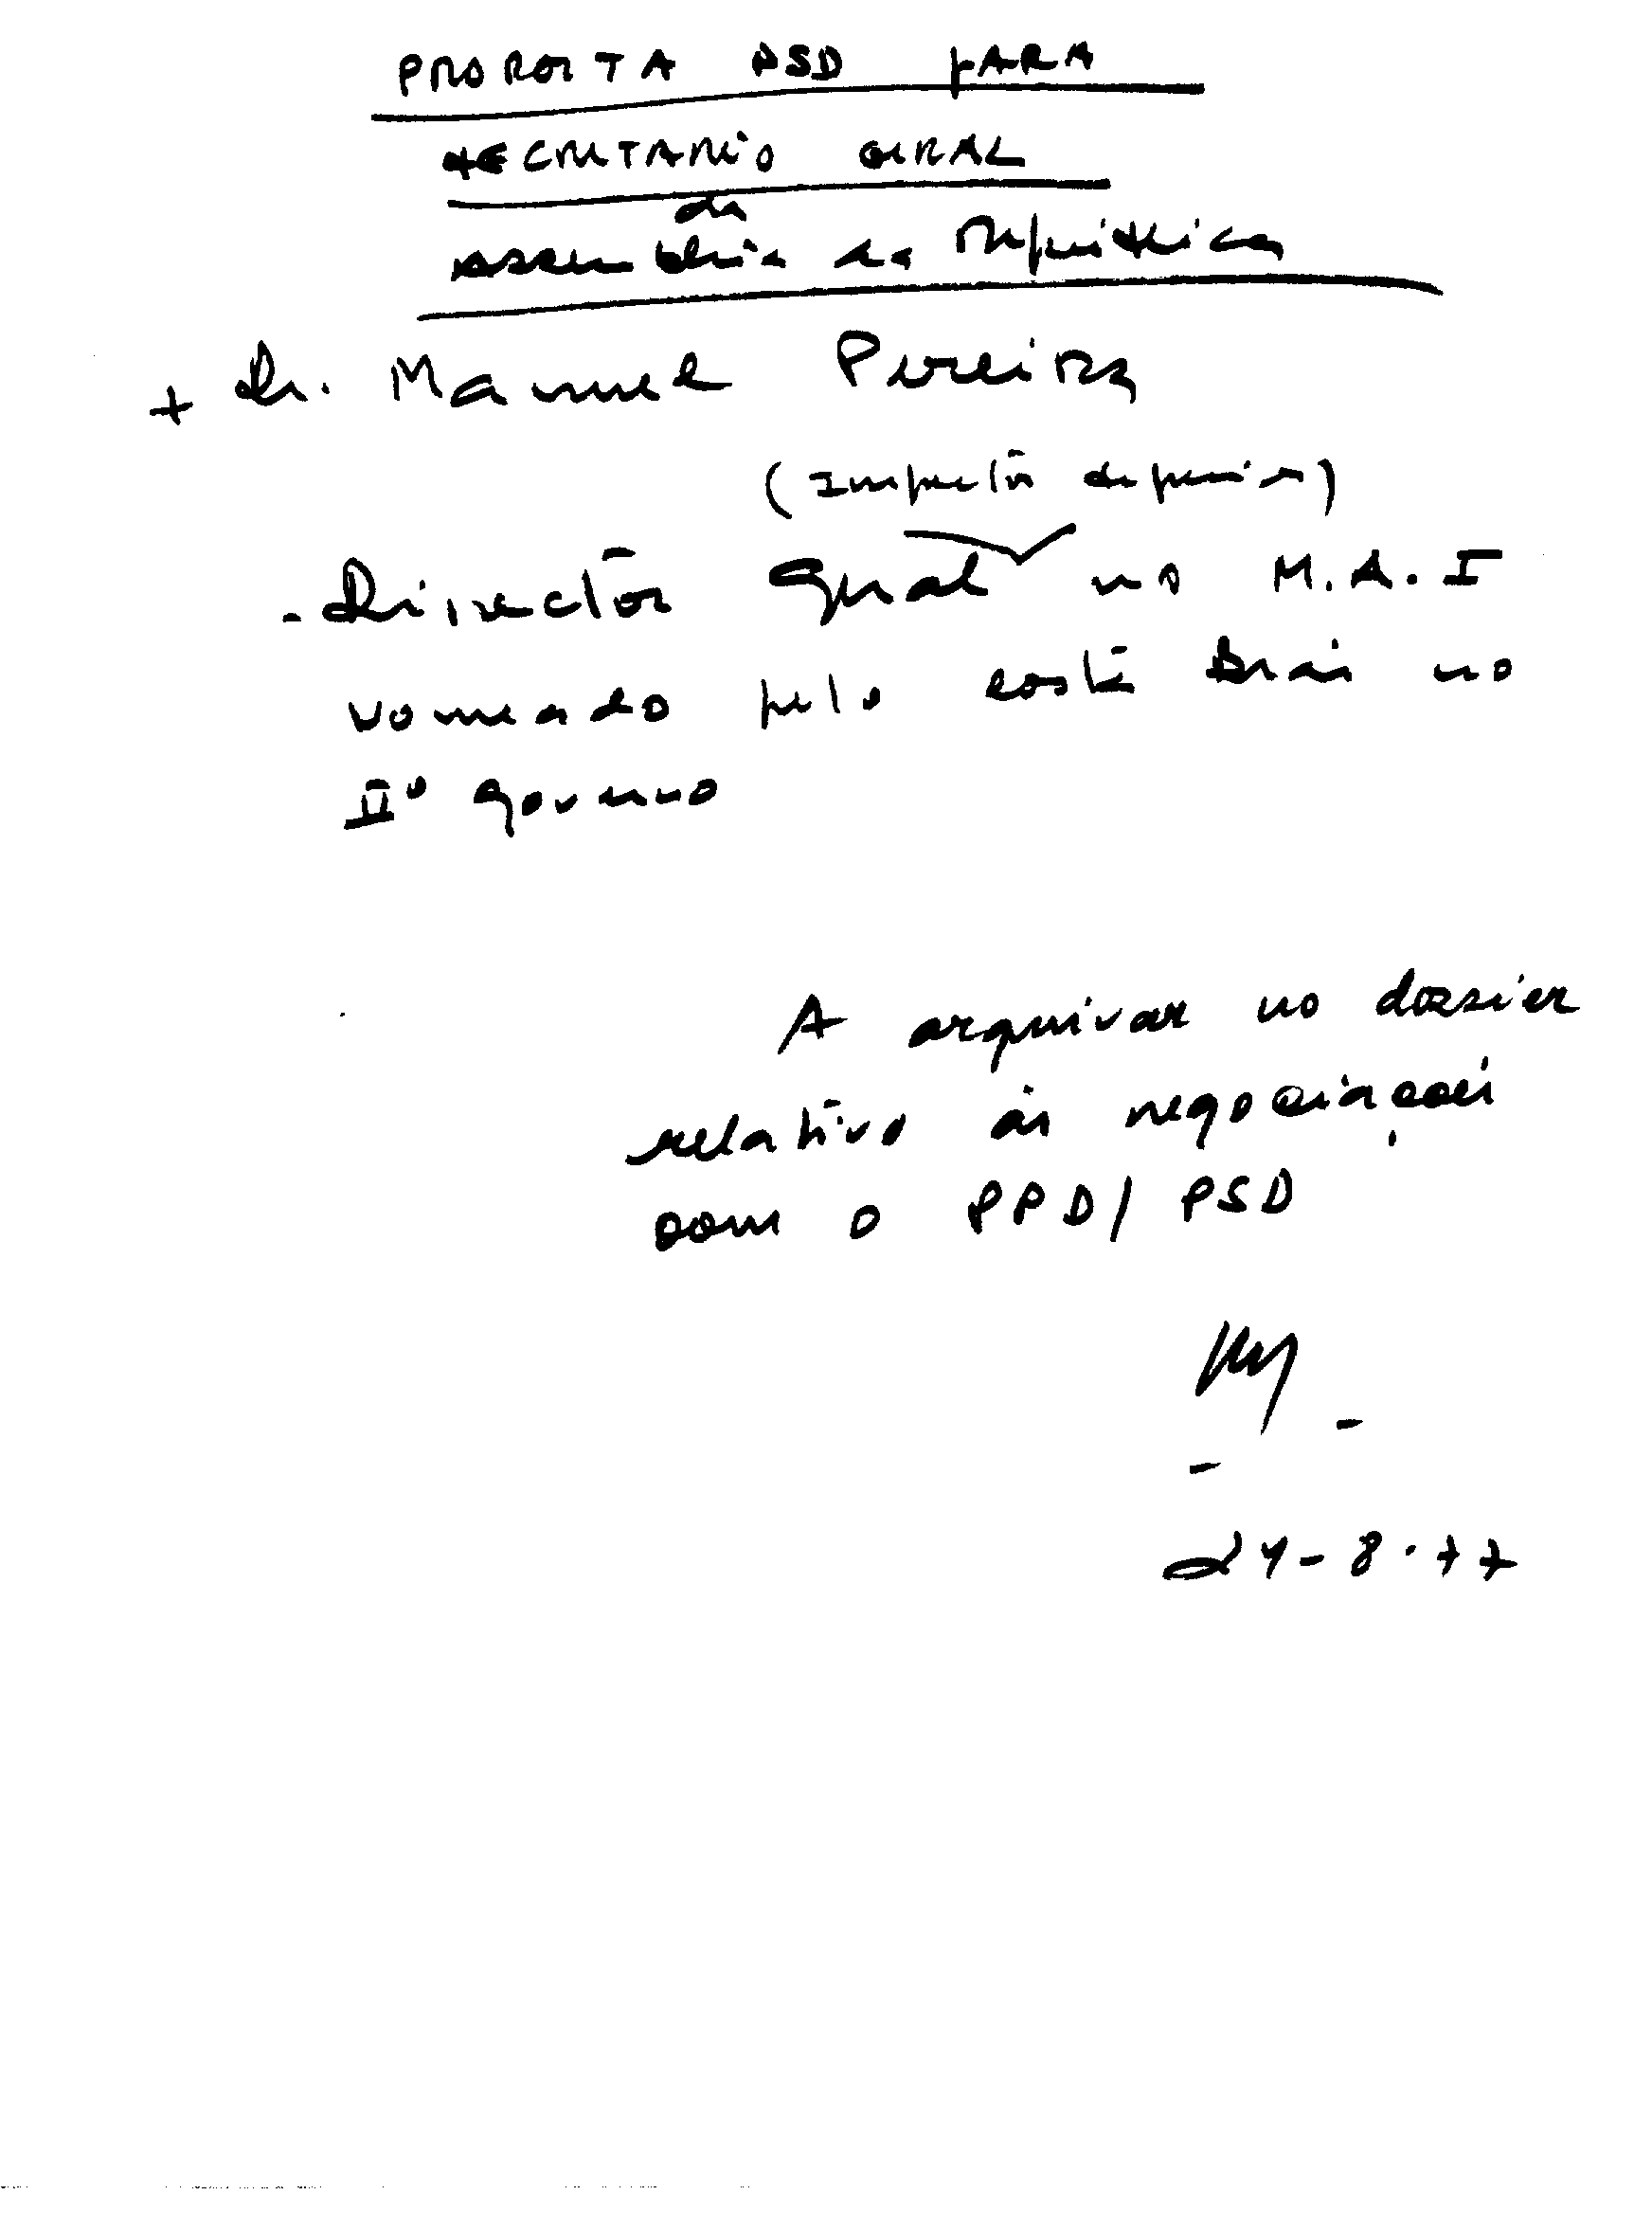 PROPOSTA PSD PARA
SECRETARIO GERAL
da
Assembleia da República
+ Dr. Manuel Pereira
(Inspector superior)
- Director Geral no M.A.I
nomeado pelo Costa Brás no
IIº Governo
A arquivar no dossier
relativo às negociações
com o PPD/PSD
24-8-77